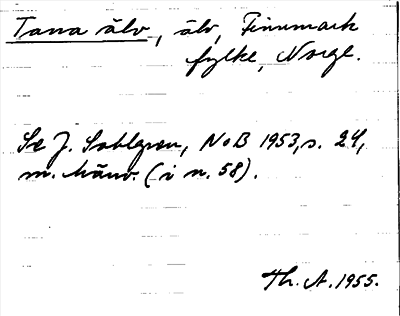 Tana älv, älv, Finnmark
fylke, Norge.
Se J. Sahlgren, NoB 1953, s. 24,
m. hänv. (i n. 58).
Th. A. 1955.